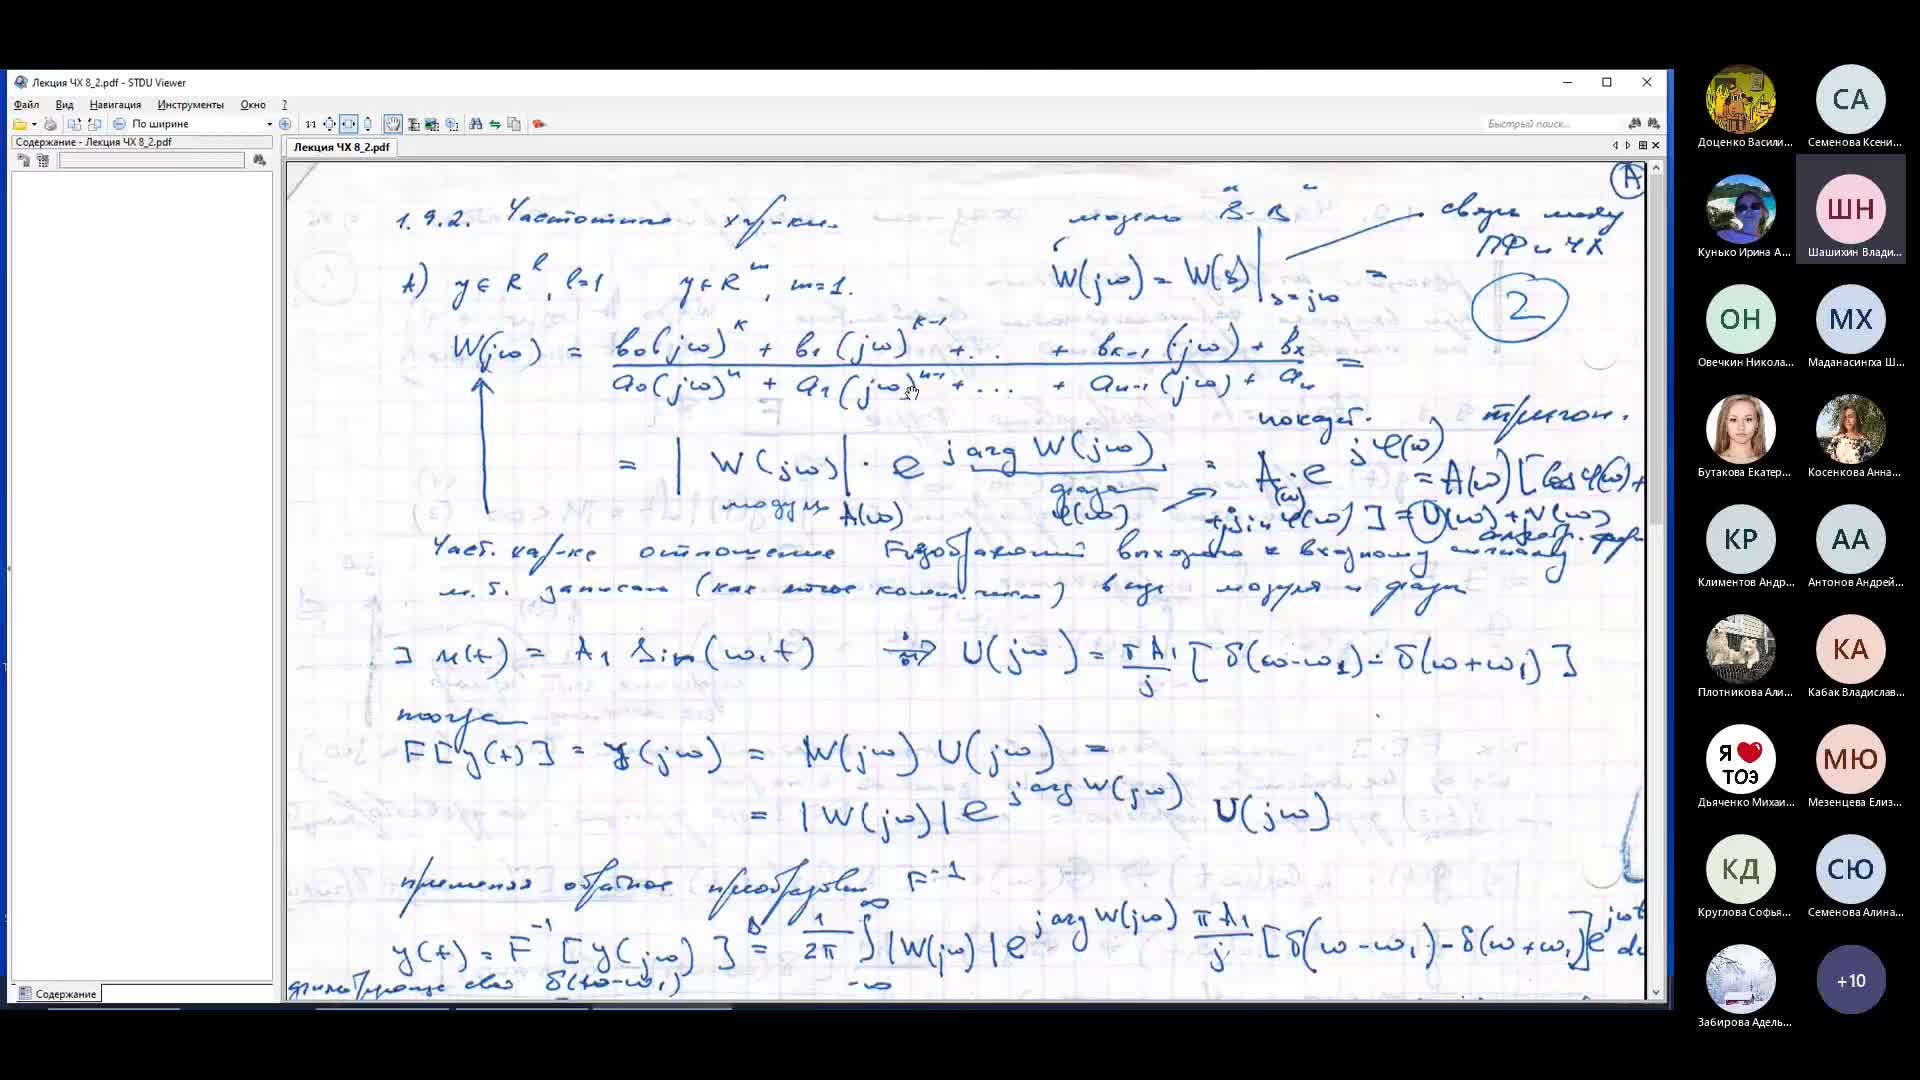 Лекция ЧХ 8_2.pdf - STDU Viewer
Файл Вид Навигация Инструменты Окно ?
По ширине
1:1
Быстрый поиск...
Содержание - Лекция ЧХ 8_2.pdf
Лекция ЧХ 8_2.pdf
A
1.9.2. Частотные хар-ки. модель "В-В" связь между
ПФ и ЧХ
А) y ∈ R^l, l=1 y ∈ R^m, m=1. W(jω) = W(s)|_{s=jω} =
2
W(jω) = (b0(jω)^k + b1(jω)^{k-1} + ... + b_{k-1}(jω) + b_k) / (a0(jω)^n + a1(jω)^{n-1} + ... + a_{n-1}(jω) + a_n) =
показат. тригон.
= |W(jω)| · e^{j arg W(jω)} = A(ω)·e^{jφ(ω)} = A(ω)[cosφ(ω)+
модуль A(ω) фаза φ(ω) +j sin φ(ω)] = U(ω)+jV(ω)
Част. хар-ка отношение F-изображений выходного к входному сигналу
м.б. записана (как любое компл. число) в виде модуля и фазы
∃ u(t) = A1 Sin(ω1t) ⇒ U(jω) = πA1/j [δ(ω-ω1) - δ(ω+ω1)]
тогда
F[y(t)] = y(jω) = W(jω) U(jω) =
= |W(jω)| e^{j arg W(jω)} U(jω)
применяя обратное преобразован F^-1
y(t) = F^-1 [y(jω)] = 1/2π ∫_{-∞}^{∞} |W(jω)| e^{j arg W(jω)} πA1/j [δ(ω-ω1) - δ(ω+ω1)] e^{jωt} dω
δ(ω-ω1)
Содержание
Доценко Васили...
СА
Семенова Ксени...
Кунько Ирина А...
ШН
Шашихин Влади...
ОН
Овечкин Никола...
МХ
Маданасингха Ш...
Бутакова Екатер...
Косенкова Анна...
КР
Климентов Андр...
АА
Антонов Андрей...
Плотникова Али...
КА
Кабак Владислав...
Я ❤ ТОЭ
Дьяченко Михаи...
МЮ
Мезенцева Елиз...
КД
Круглова Софья...
СЮ
Семенова Алина...
Забирова Адель...
+10